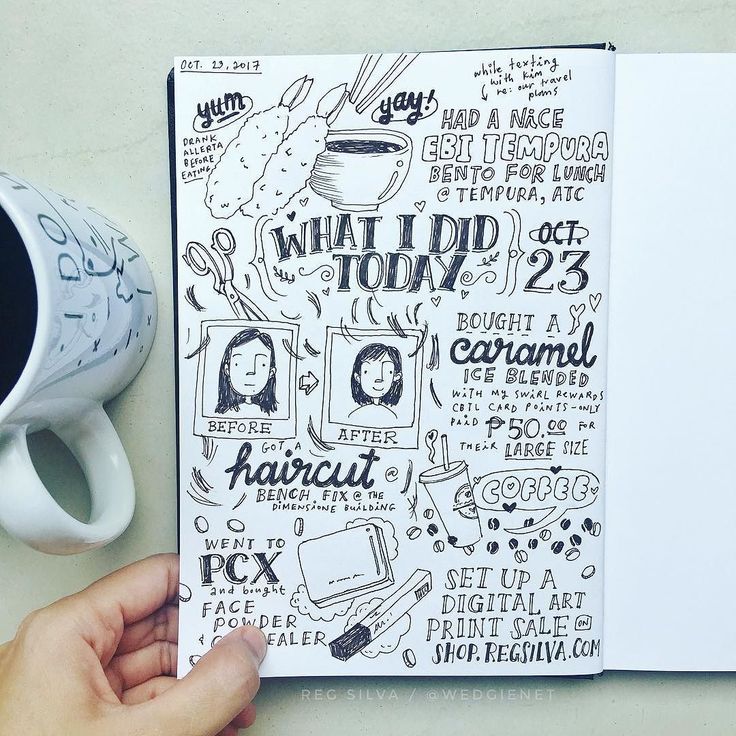 OCT. 23, 2017
while texting
with kim
re: our travel
plans
yum
yay!
DRANK
ALLERTA
BEFORE
EATING
HAD A NICE
EBI TEMPURA
BENTO FOR LUNCH
@ TEMPURA, ATC
WHAT I DID
TODAY
OCT.
23
BEFORE
AFTER
BOUGHT A
caramel
ICE BLENDED
WITH MY SWIRL REWARDS
CBTL CARD POINTS-ONLY
PAID ₱50.00 FOR
THEIR LARGE SIZE
GOT A
haircut @
BENCH FIX @ THE
DIMENSIONE BUILDING
COFFEE
WENT TO
PCX
and bought
FACE
POWDER
SET UP A
DIGITAL ART
PRINT SALE ON
SHOP.REGSILVA.COM
I DO
REG SILVA / @WEDGIENET